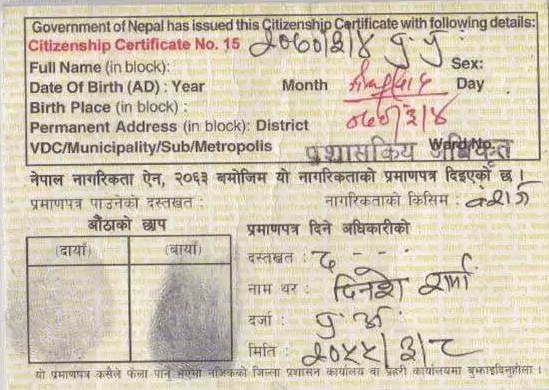 Government of Nepal has issued this Citizenship Certificate with following details:
Citizenship Certificate No. 15 २०६०/३/४
Full Name (in block): Sex:
Date Of Birth (AD) : Year Month Day
Birth Place (in block) :
Permanent Address (in block): District ०६०/३/४
VDC/Municipality/Sub/Metropolis Ward No.
प्रशासकिय अधिकृत
नेपाल नागरिकता ऐन, २०६३ बमोजिम यो नागरिकताको प्रमाणपत्र दिइएको छ ।
प्रमाणपत्र पाउनेको दस्तखत : नागरिकताको किसिम : वंशज
औंठाको छाप
(दायाँ) (बायाँ)
प्रमाणपत्र दिने अधिकारीको
दस्तखत :
नाम थर : दिनेश शर्मा
दर्जा : प्र. अ.
मिति : २०५५/३/८
यो प्रमाणपत्र कसैले फेला पारेमा नजिकको जिल्ला प्रशासन कार्यालय वा प्रहरी कार्यालयमा बुझाइदिनुहोला ।